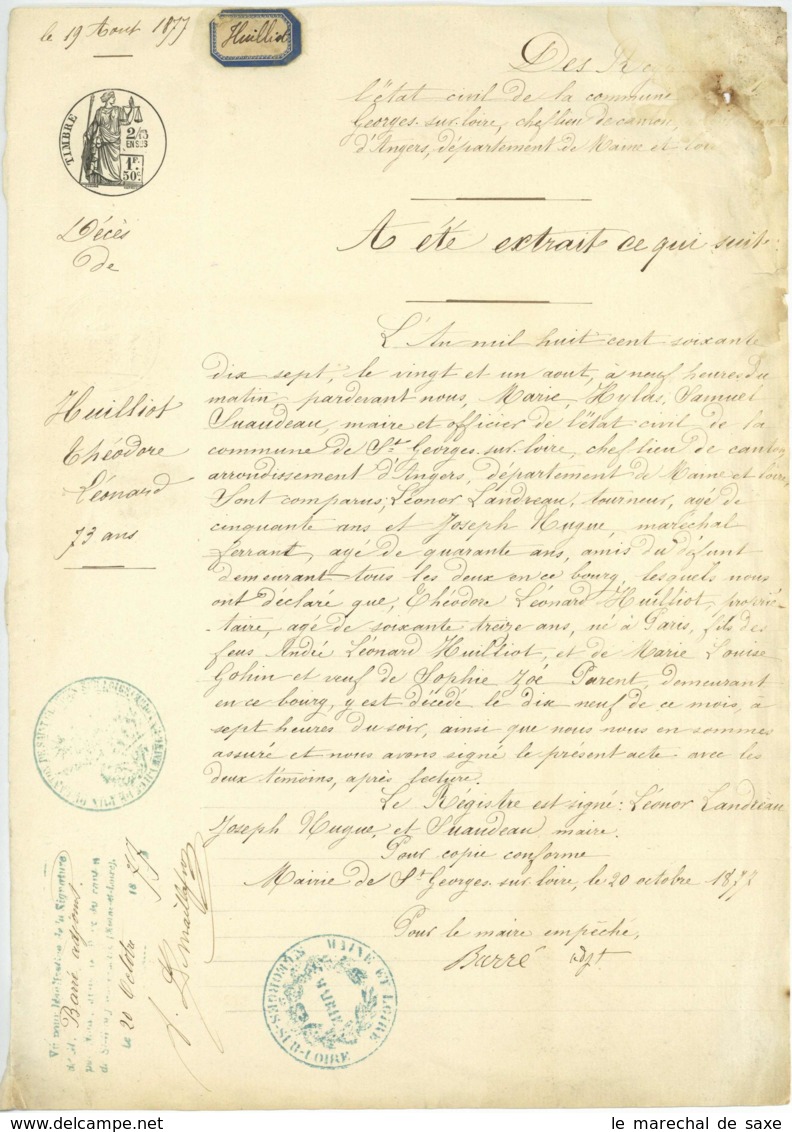 le 19 Aout 1877
Huilliot
Des Re
l'état civil de la commune
Georges-sur-loire, chef lieu de canton,
d'Angers, département de Maine et Loire
TIMBRE
2/10
EN SUS
1F.
50c.
Décès
de
A été extrait ce qui suit:
Huilliot
Théodore
Léonard
73 ans
L'An mil huit cent soixante
dix sept, le vingt et un aout, à neuf heures du
matin, pardevant nous, Marie, Hylas, Samuel
Suaudeau, maire et officier de l'état civil de la
commune de St Georges-sur-loire, chef lieu de canton,
arrondissement d'Angers, département de Maine et loire,
Sont comparus; Léonor Landreau, tourneur, agé de
cinquante ans et Joseph Hugue, maréchal
ferrant, agé de quarante ans, amis du défunt
demeurant tous les deux en ce bourg, lesquels nous
ont déclaré que, Théodore Léonard Huilliot, proprié-
-taire, agé de soixante treize ans, né à Paris, fils des
feus André Léonard Huilliot, et de Marie Louise
Gohin et veuf de Sophie Zoé Parent, demeurant
en ce bourg, y est décédé le dix neuf de ce mois, à
sept heures du soir, ainsi que nous nous en sommes
assuré et nous avons signé le présent acte avec les
deux témoins, après lecture.
Le Régistre est signé: Léonor Landreau
Joseph Hugue, et Suaudeau, maire.
Pour copie conforme
Mairie de St Georges-sur-loire, le 20 octobre 1877
Pour le maire empêché,
Barré adjt
MAINE ET LOIRE
MAIRIE
ST GEORGES-SUR-LOIRE
de la Signature
de M. Barré adjoint
le 20 Octobre 1877
le marechal de saxe